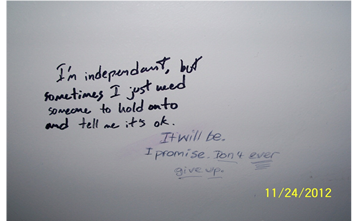 I'm independant, but
sometimes I just need
someone to hold onto
and tell me it's ok.
It will be.
I promise. Don't ever
give up.
11/24/2012